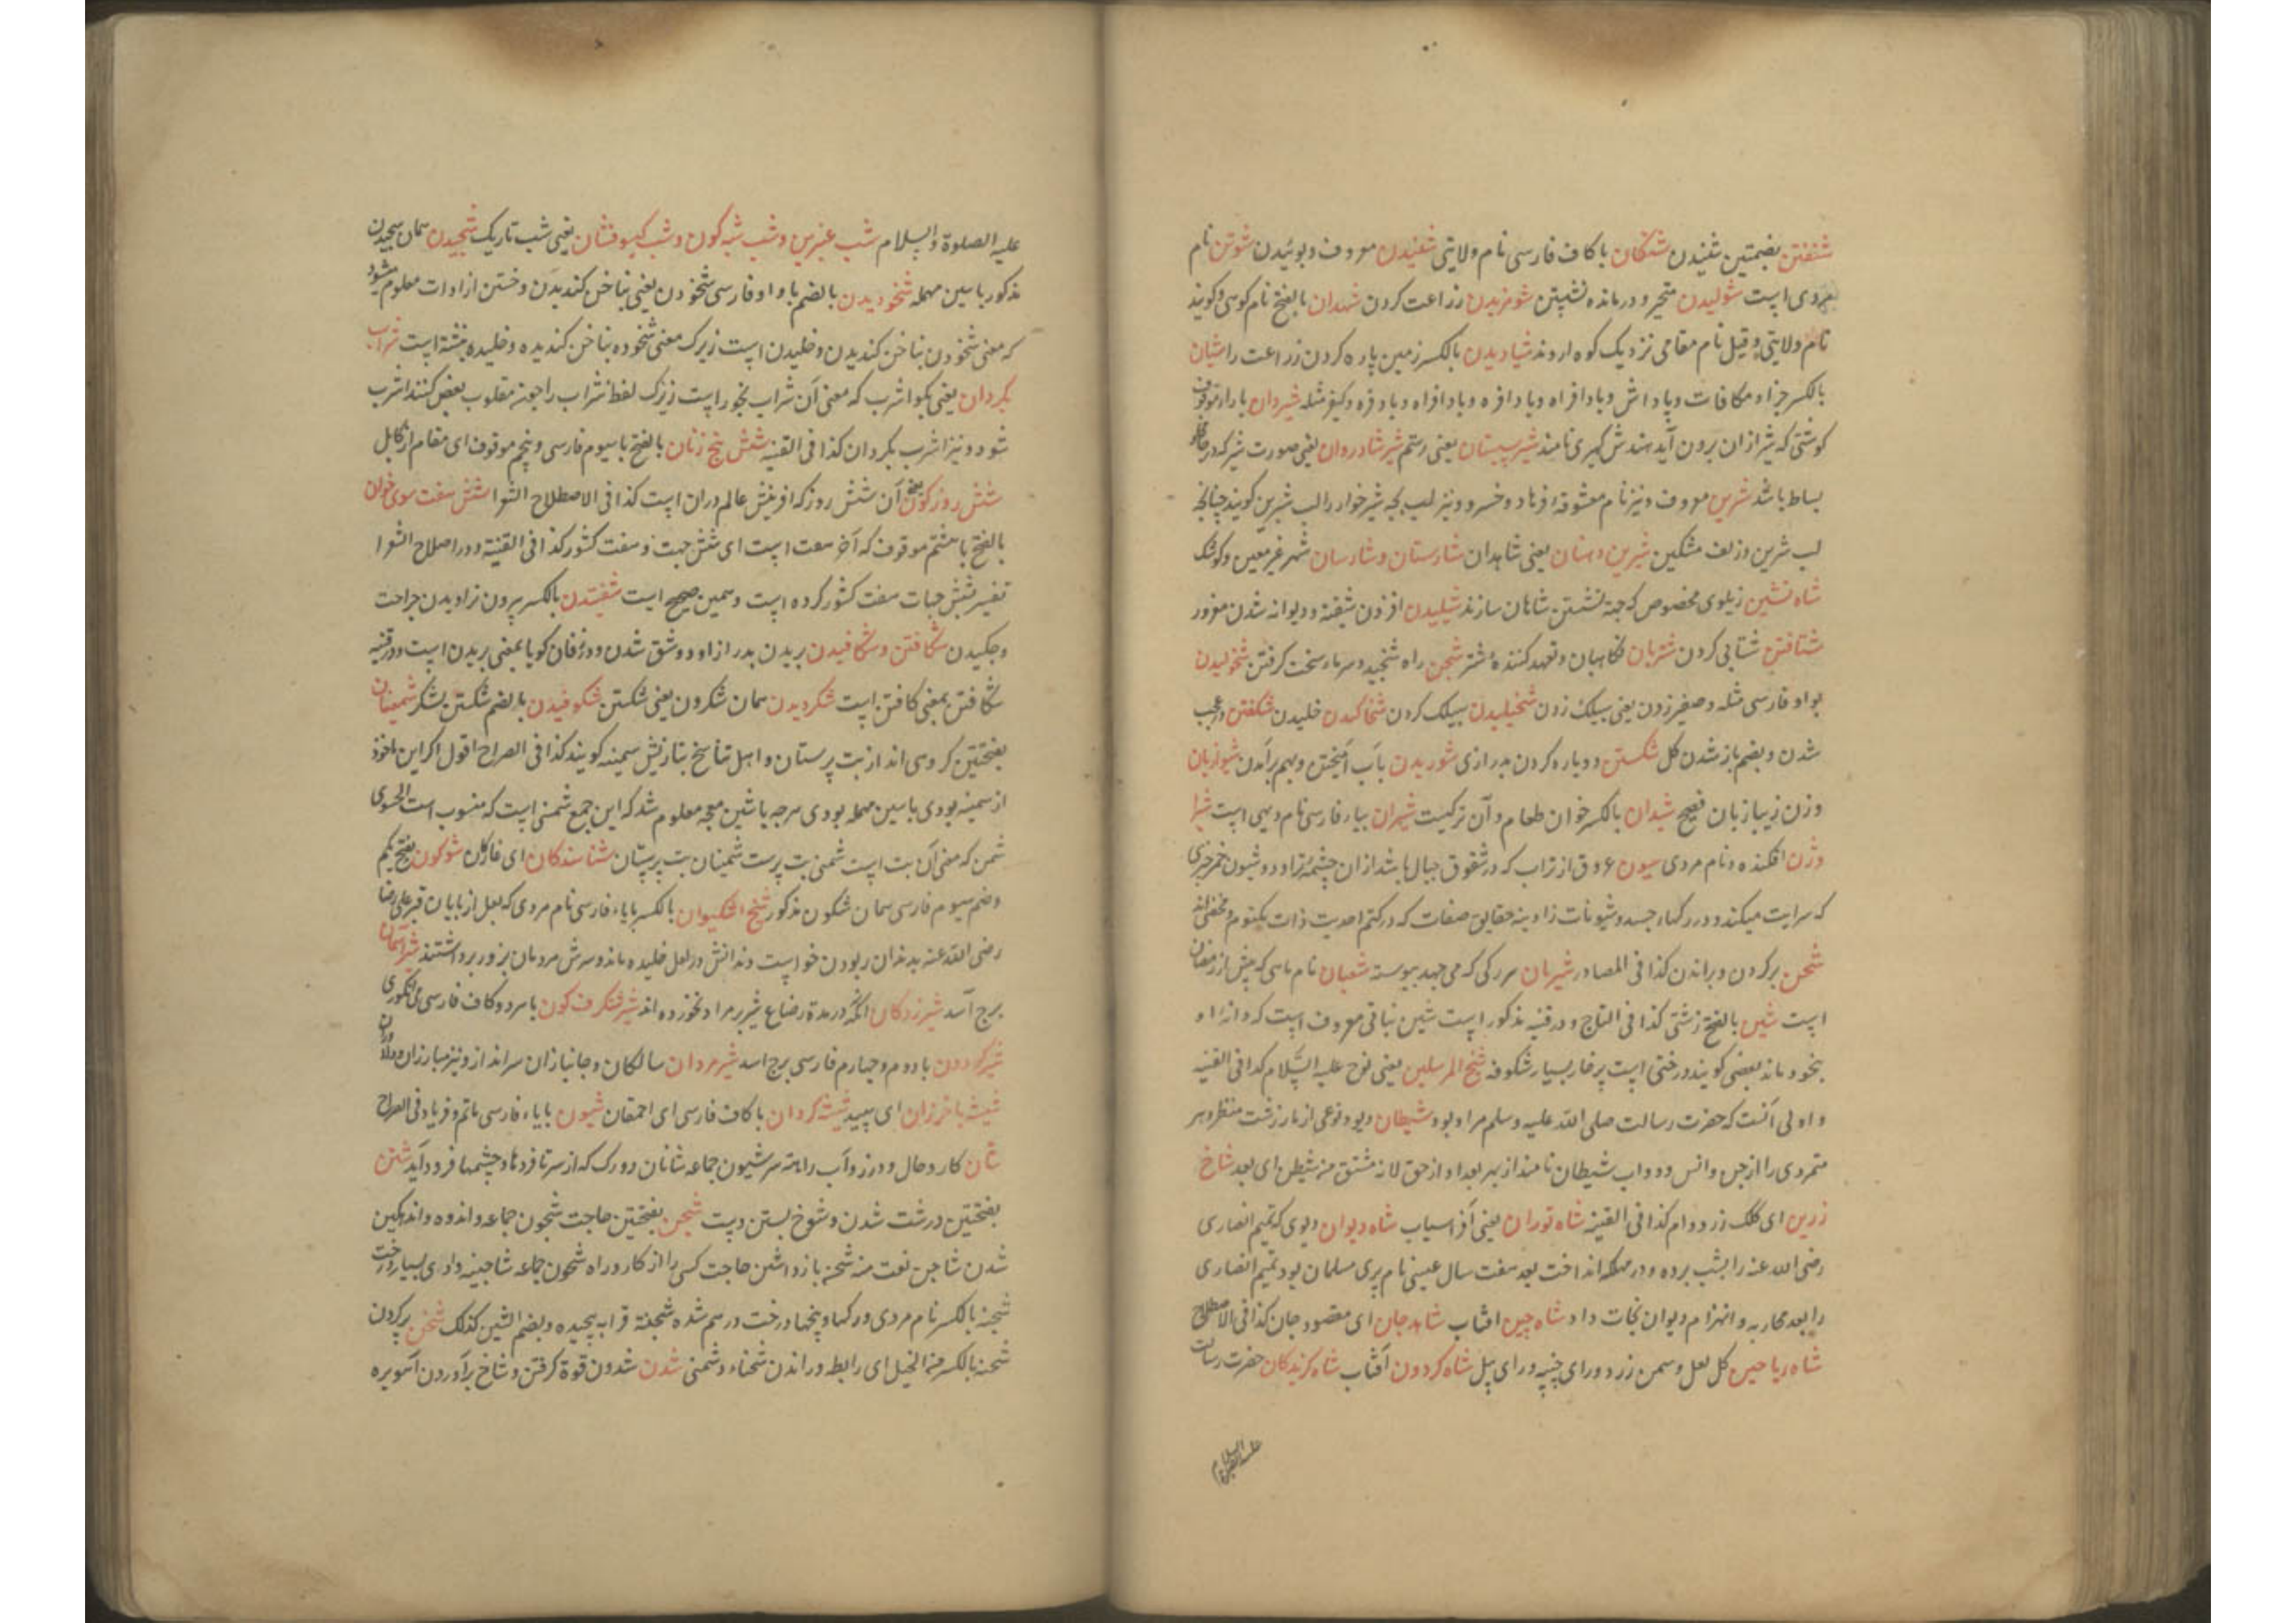 شنفتن بضمتین شنیدن شنکان با کاف فارسی نام ولایتی شنیدن معروف و بوئیدن شوتن نام
مردی است شولیدن متحیر و درمانده نشستن شومزیدن زراعت کردن شهدان بالفتح نام کوسی و کویند
نام ولایتی و قیل نام مقامی نزدیک کوه اروند شیادیدن بالکسر زمین پاره کردن زراعت را شیان
بالکسر جزا و مکافات و پاداش و بادافراه و بادافره و بادافراه و بادفره و کیفر مثله شیردان با راء موقوف
کوشتی که شیر ازان برون آید هندش کهیری نامند شیر سیستان یعنی رستم شیر شادروان یعنی صورت شیر که در
بساط باشد شیرین معروف و نیز نام معشوقه فرهاد و خسرو و نیز لب بچه شیرخوار را لب شیرین کویند چنانچه
لب شیرین و زلف مشکین شیرین دهنان یعنی شاهدان شارستان و شارسان شهر غیر معین و کوشک
شاه نشین زیلوی مخصوص که جهة نشستن شاهان سازند شیلیدن افزدن شیفته و دیوانه شدن مغرور
شتافتن شتابی کردن شتربان نکاهبان و تعهد کنندهٔ شتر شجن راه شنجید و سرماء سخت کرفتن شخولیدن
بواو فارسی مثله و صفیر زدن یعنی سیلک زدن شخیلیدن سیلک کردن شخاکیدن خلیدن شکفتن و عجب
شدن و بضم باز شدن کل شکستن دو پاره کردن بدرازی شوریدن بآب آمیختن و بهم برآمدن شیوازبان
و زن زیبا زبان فصیح شیدان بالکسر خوان طعام و آن ترکیست شیران بیاء فارسی نام دیهی است شیرا
وژن افکنده و نام مردی سیون عروق از تراب که در شقوق جبال باشد ازان چشمه تراود و شیون هر چیزی
که سرایت میکند و در رکهاء جسد و شیونات زاویه حقایق صفات که در کتم احدیت ذات مکتوم و مخفی اند
شحن پر کردن و براندن کذا فی المصادر شیریان سر رکی که می جهد پیوسته شعبان نام ماهی که پیش از رمضان
است شین بالفتح زشتی کذا فی التاج و در قنیه مذکور است شین نباتی معروف است که دانه او
بخود ماند بعضی کویند درختی است پرخار بسیار شکوفه شیخ المرسلین یعنی نوح علیه السلام کذا فی القنیه
و اولی آنست که حضرت رسالت صلی الله علیه وسلم مراد بود شیطان دیو و نوعی از مار زشت منظر و هر
متمردی را از جن و انس و دواب شیطان نامند از بهر بعد او از حق لانه مشتق من شیطن ای بعد شاخ
زرین ای کلک زرد وام کذا فی القنیه شاه توران یعنی افراسیاب شاه دیوان دیوی که تمیم انصاری
رضی الله عنه را بشب برده و در مهلکه انداخت بعد هفت سال عیسی نام پری مسلمان بود تمیم انصاری
را بعد محاربه و انهزام دیوان نجات داد شاه چین افتاب شاهد جان ای مقصود جان کذا فی الاصطلاح
شاه ریاحین کل لعل و سمن زرد و رای چنپه و رای بیل شاه کردون آفتاب شاه کزیدکان حضرت رسالت
علیه الصلوة والسلام شب عنبرین و شب شبه کون و شب کیسو فشان یعنی شب تاریک شجیدن همان سجیدن
مذکور با سین مهمله شخودیدن بالضم با واو فارسی شخودن یعنی بناخن کندیدن و خستن از ادات معلوم میشود
که معنی شخودن بناخن کندیدن و خلیدن است زیرک معنی شخوده بناخن کندیده و خلیده نبشته است شراب
بکردان یعنی بکو اشرب که معنی آن شراب بخور است زیرک لفظ شراب را چون مقلوب بعض کنند اشرب
شود و نیز اشرب بکردان کذا فی القنیه شش پنج زنان بالفتح با سیوم فارسی و پنجم موقوف ای مقام از کابل
شش روز کون یعنی آن شش روز که افرینش عالم دران است کذا فی الاصطلاح الشعرا شش هفت سوی خوان
بالفتح با هشتم موقوف که آخر هفت است ای شش جهت و هفت کشور کذا فی القنیة و در اصطلاح الشعرا
تفسیر شش جهات هفت کشور کرده است و همین صحیح است شفیدن بالکسر بیرون تراویدن جراحت
و چکیدن شکافتن و شکافیدن بریدن بدرازا و دو شق شدن و در زفان کویا بمعنی بریدن است و در قنیه
شکافتن بمعنی کافتن است شکردیدن همان شکردن یعنی شکستن شکوفیدن بالضم شکستن لشکر شمینان
بفتحتین کروهی اند از بت پرستان و اهل تناسخ بتازیش سمنیه کویند کذا فی الصراح اقول اکر این ماخوذ
از سمنیه بودی با سین مهمله بودی هر چه با شین معجمه معلوم شد که این جمع شمنی است که منسوب است الی سوی
شمن که معنی آن بت است شمنی بت پرست شمینان بت پرستان شناسندکان ای عارفان شوکون بفتح یکم
و ضم سیوم فارسی همان شکون مذکور شیخ اشکیوان بالکسر با یاء فارسی نام مردی که لعل از پایان قبر علی رضا
رضی الله عنه بدندان ربودن خواست دندانش در لعل خلیده ماند و سرش مردمان بزور برداشتند شیر آسمان
برج اسد شیرزدکان آنکه در مدة رضاع شیر بر مراد نخورده اند شیر شنکرف کون با هر دو کاف فارسی می انکوری
شیر کردون با دوم و چهارم فارسی برج اسد شیر مردان سالکان و جانبازان سرانداز و نیز مبارزان و دلاوران
شیشه باخرزان ای سپید شیشه کردان با کاف فارسی ای احمقان شیون با یاء فارسی ماتم و فریاد فی الصراح
شان کار و حال و درز و آب راهه سر شیون جماعه شانان دو رک که از سر تا فرد ها و چشمها فرود آید شثن
بفتحتین درشت شدن و شوخ بستن دست شجن بفتحتین حاجت شجون جماعه و اندوه و اندهکین
شدن شاجن نعت منه شجن بازداشتن حاجت کسی را از کار و راه شجون جماعه شاجنه وادی بسیار درخت
شجنه بالکسر نام مردی و رکها و بیخها درخت در هم شده شجنة قرابه پیچیده و بضم الشین کذلک شحن پر کردن
شحنه بالکسر من الخیل ای رابط و راندن شحناء دشمنی شدن شدون قوة کرفتن و شاخ برآوردن آهو بره